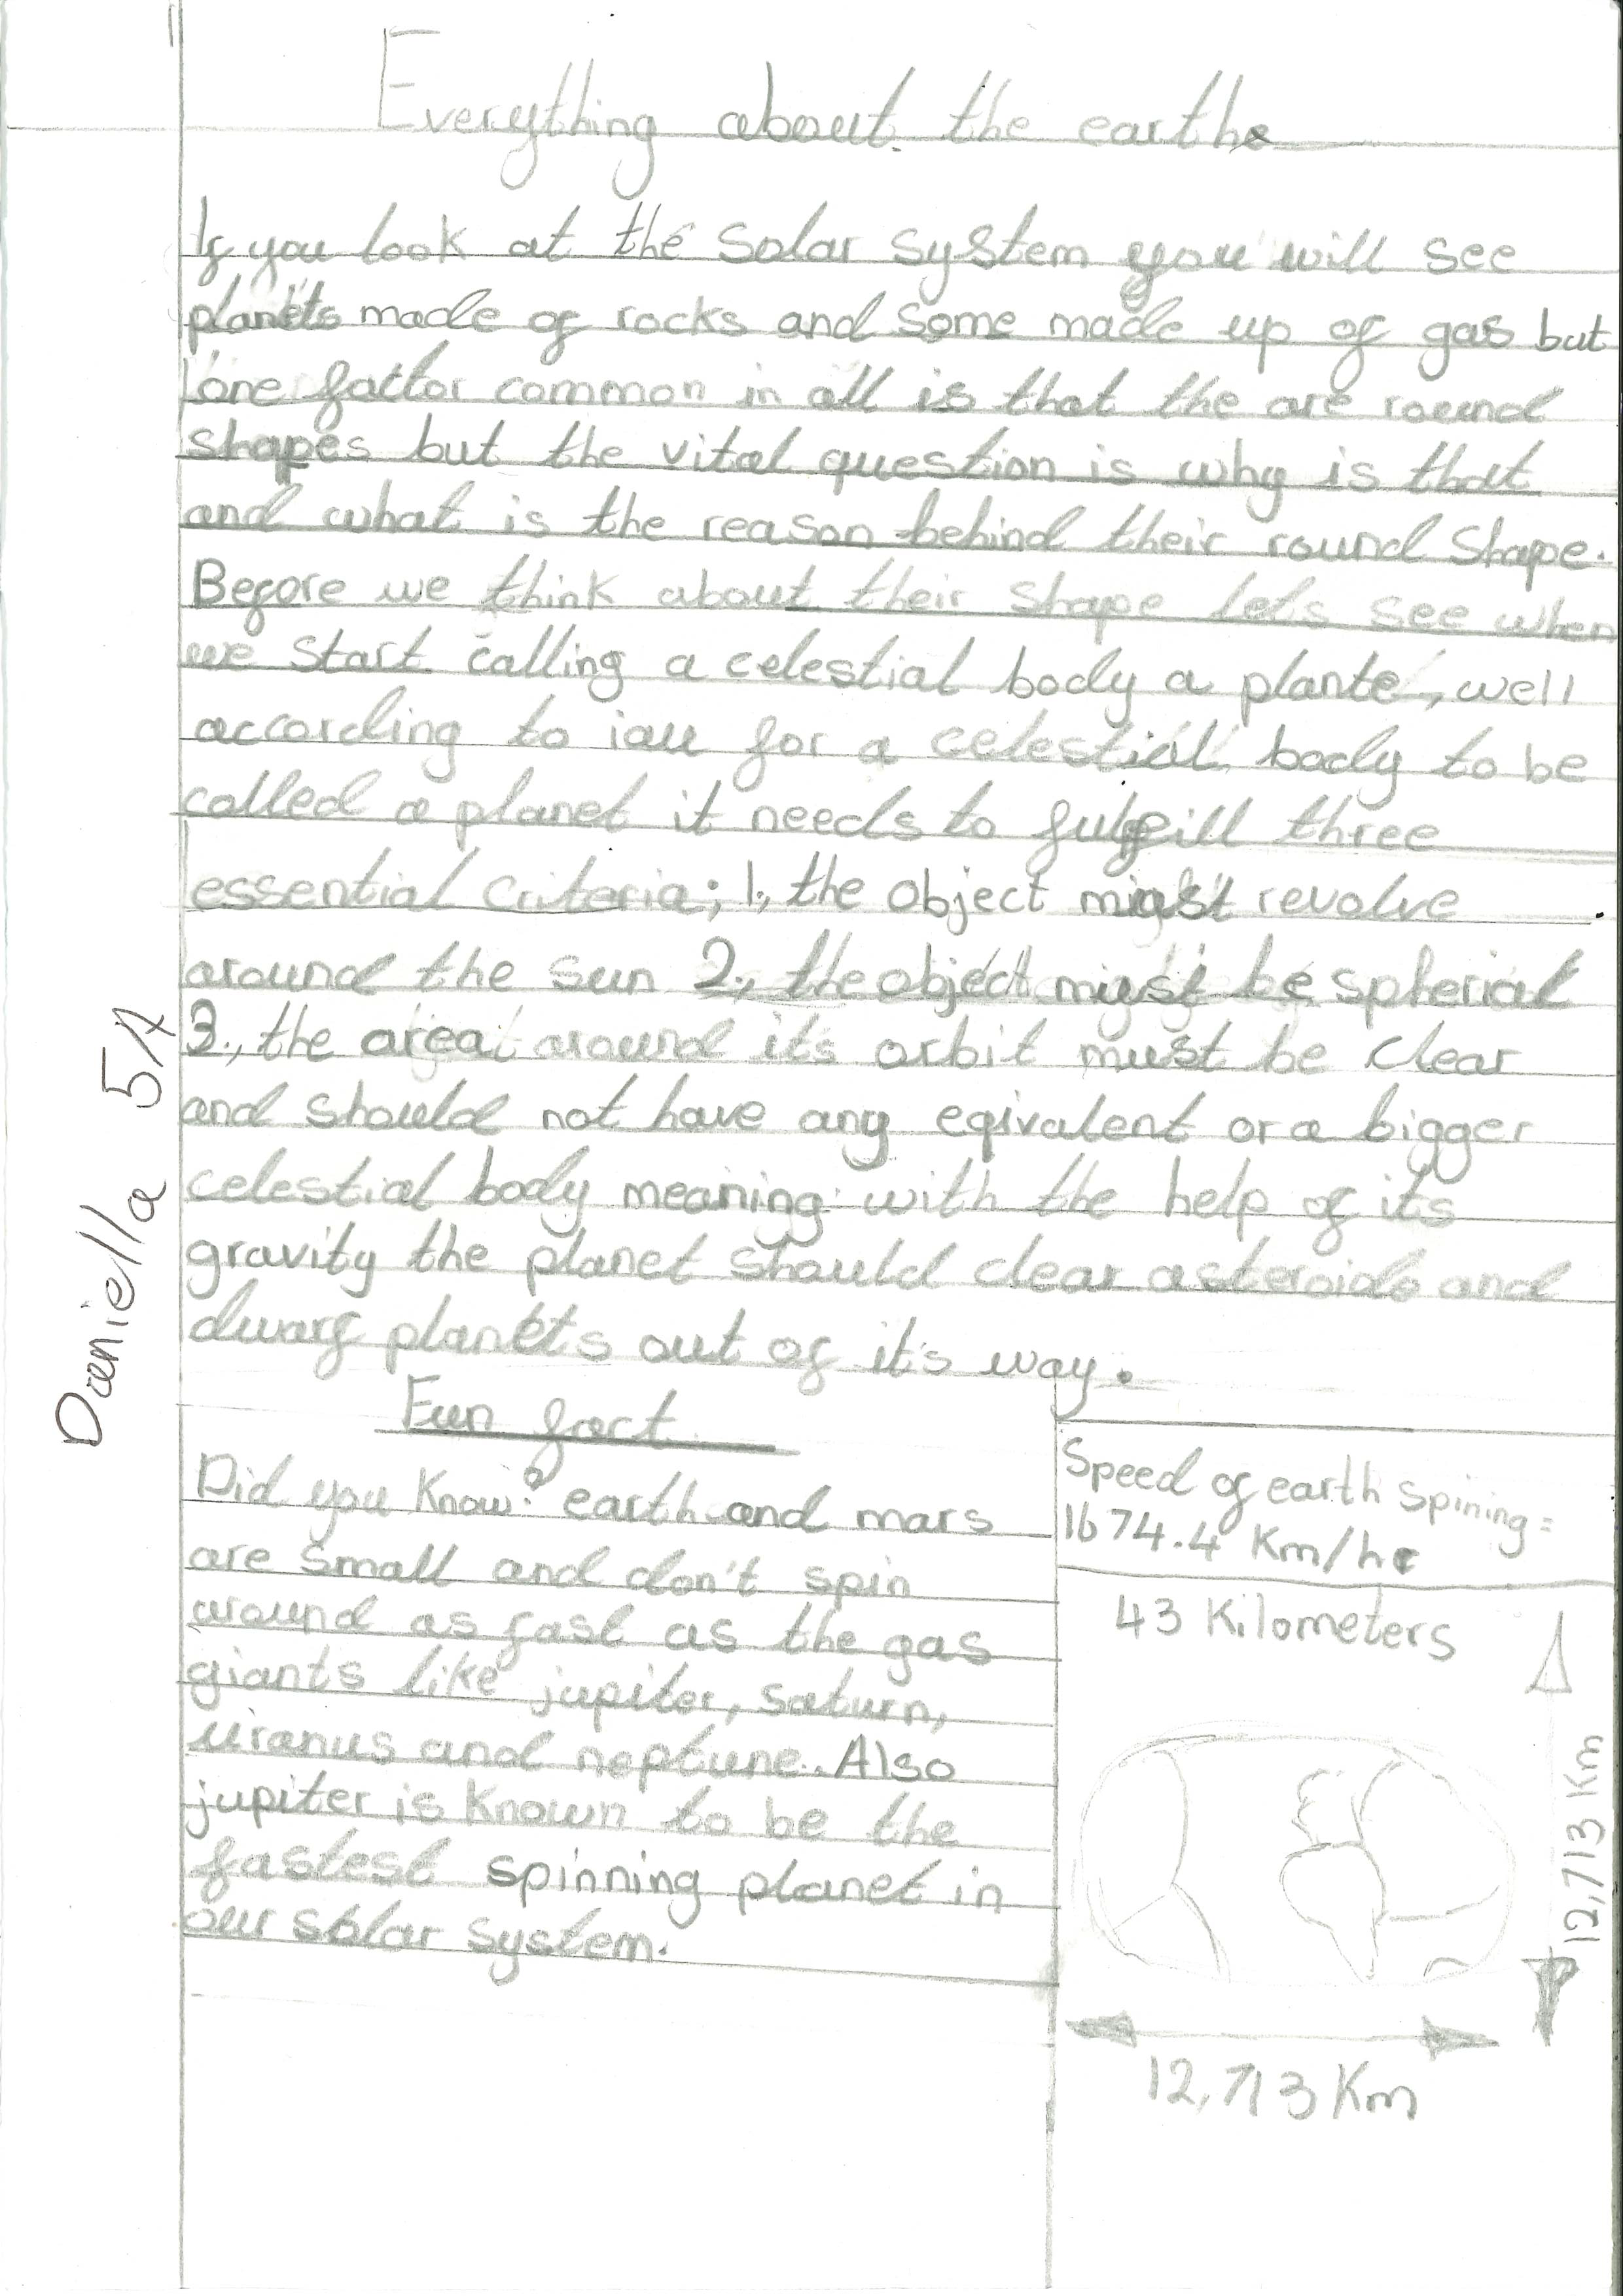 Everything about the earth
If you look at the solar system you will see
planets made of rocks and some made up of gas but
one factor common in all is that the are round
shapes but the vital question is why is that
and what is the reason behind their round shape.
Before we think about their shape let's see when
we start calling a celestial body a plante, well
according to iau for a celestial body to be
called a planet it needs to fulfill three
essential criteria; 1., the object must revolve
around the sun 2., the object must be spherial
3., the area around its orbit must be clear
and should not have any eqivalent or a bigger
celestial body meaning with the help of its
gravity the planet should clear asteroids and
dwarf planets out of it's way.
Fun fact
Did you know? earth and mars
are small and don't spin
around as fast as the gas
giants like jupiter, saturn,
uranus and neptune. Also
jupiter is known to be the
fastest spinning planet in
our solar system.
Speed of earth spining=
1674.4 Km/hr
43 Kilometers
12,713 Km
12,713 Km
Daniella 5A